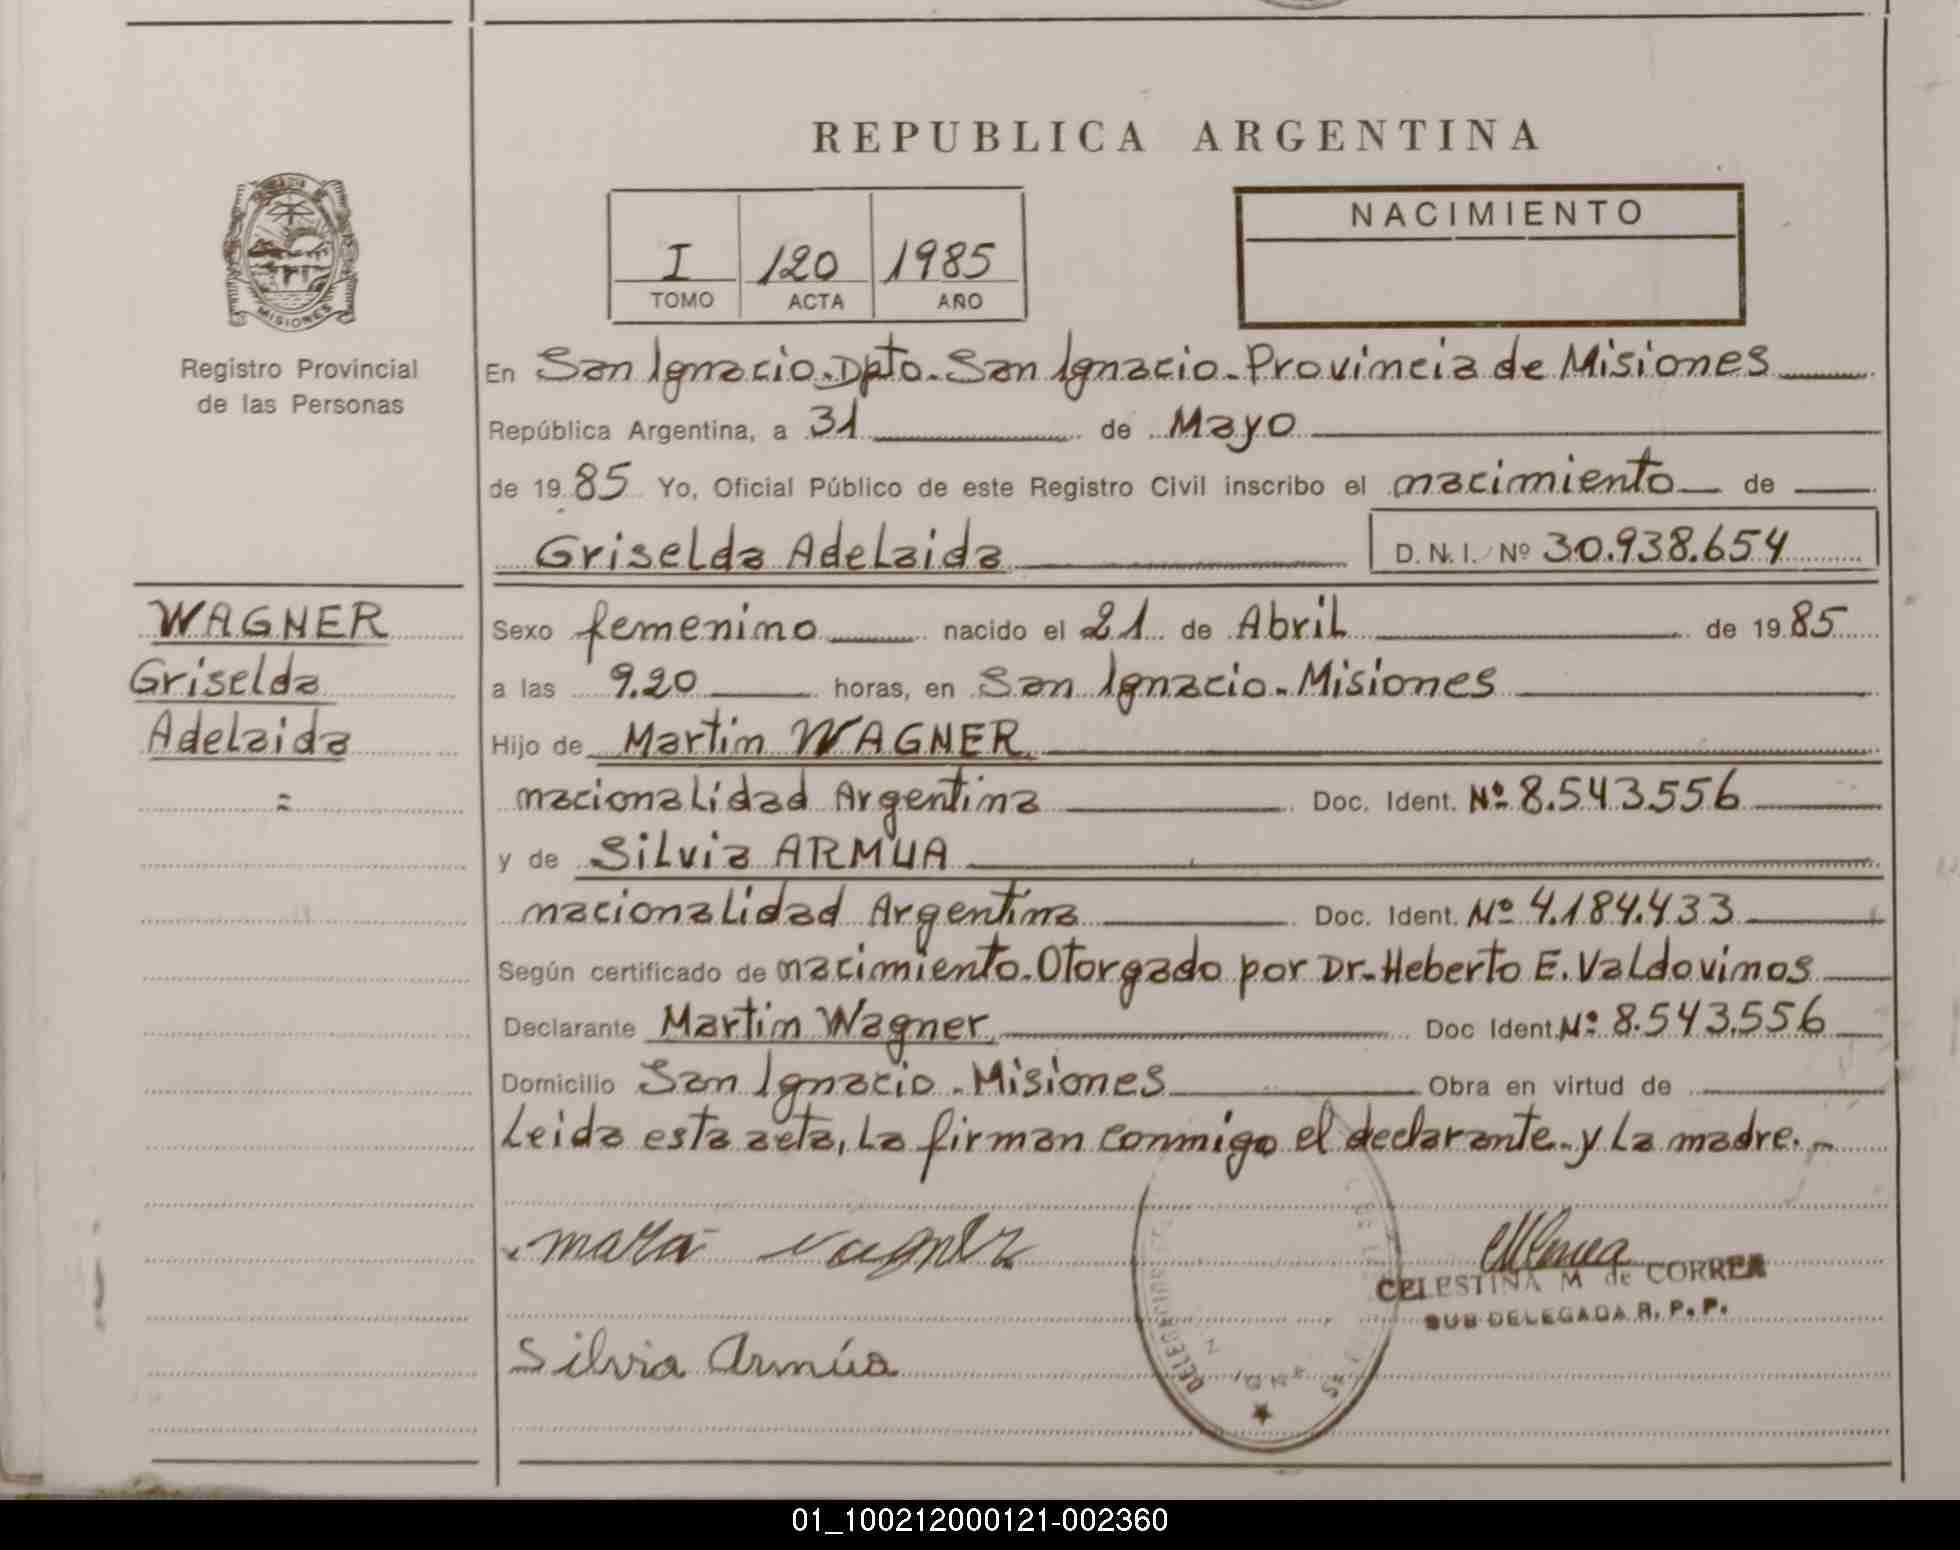 REPUBLICA ARGENTINA
I 120 1985
TOMO ACTA AÑO
NACIMIENTO
MISIONES
Registro Provincial
de las Personas
En San Ignacio. Dpto. San Ignacio. Provincia de Misiones
República Argentina, a 31 de Mayo
de 1985 Yo, Oficial Público de este Registro Civil inscribo el nacimiento de
Griselda Adelaida D.N.I. Nº 30.938.654
WAGNER
Griselda
Adelaida
=
Sexo femenino nacido el 21 de Abril de 1985
a las 9.20 horas, en San Ignacio. Misiones
Hijo de Martin WAGNER
nacionalidad Argentina Doc. Ident. Nº 8.543.556
y de Silvia ARMUA
nacionalidad Argentina Doc. Ident. Nº 4.184.433
Según certificado de nacimiento. Otorgado por Dr. Heberto E. Valdovinos
Declarante Martin Wagner Doc Ident. Nº 8.543.556
Domicilio San Ignacio. Misiones Obra en virtud de
Leida esta acta, la firman conmigo el declarante. y la madre.-
CELESTINA M de CORREA
SUB DELEGADA R. P. P.
Silvia Armúa
01_100212000121-002360